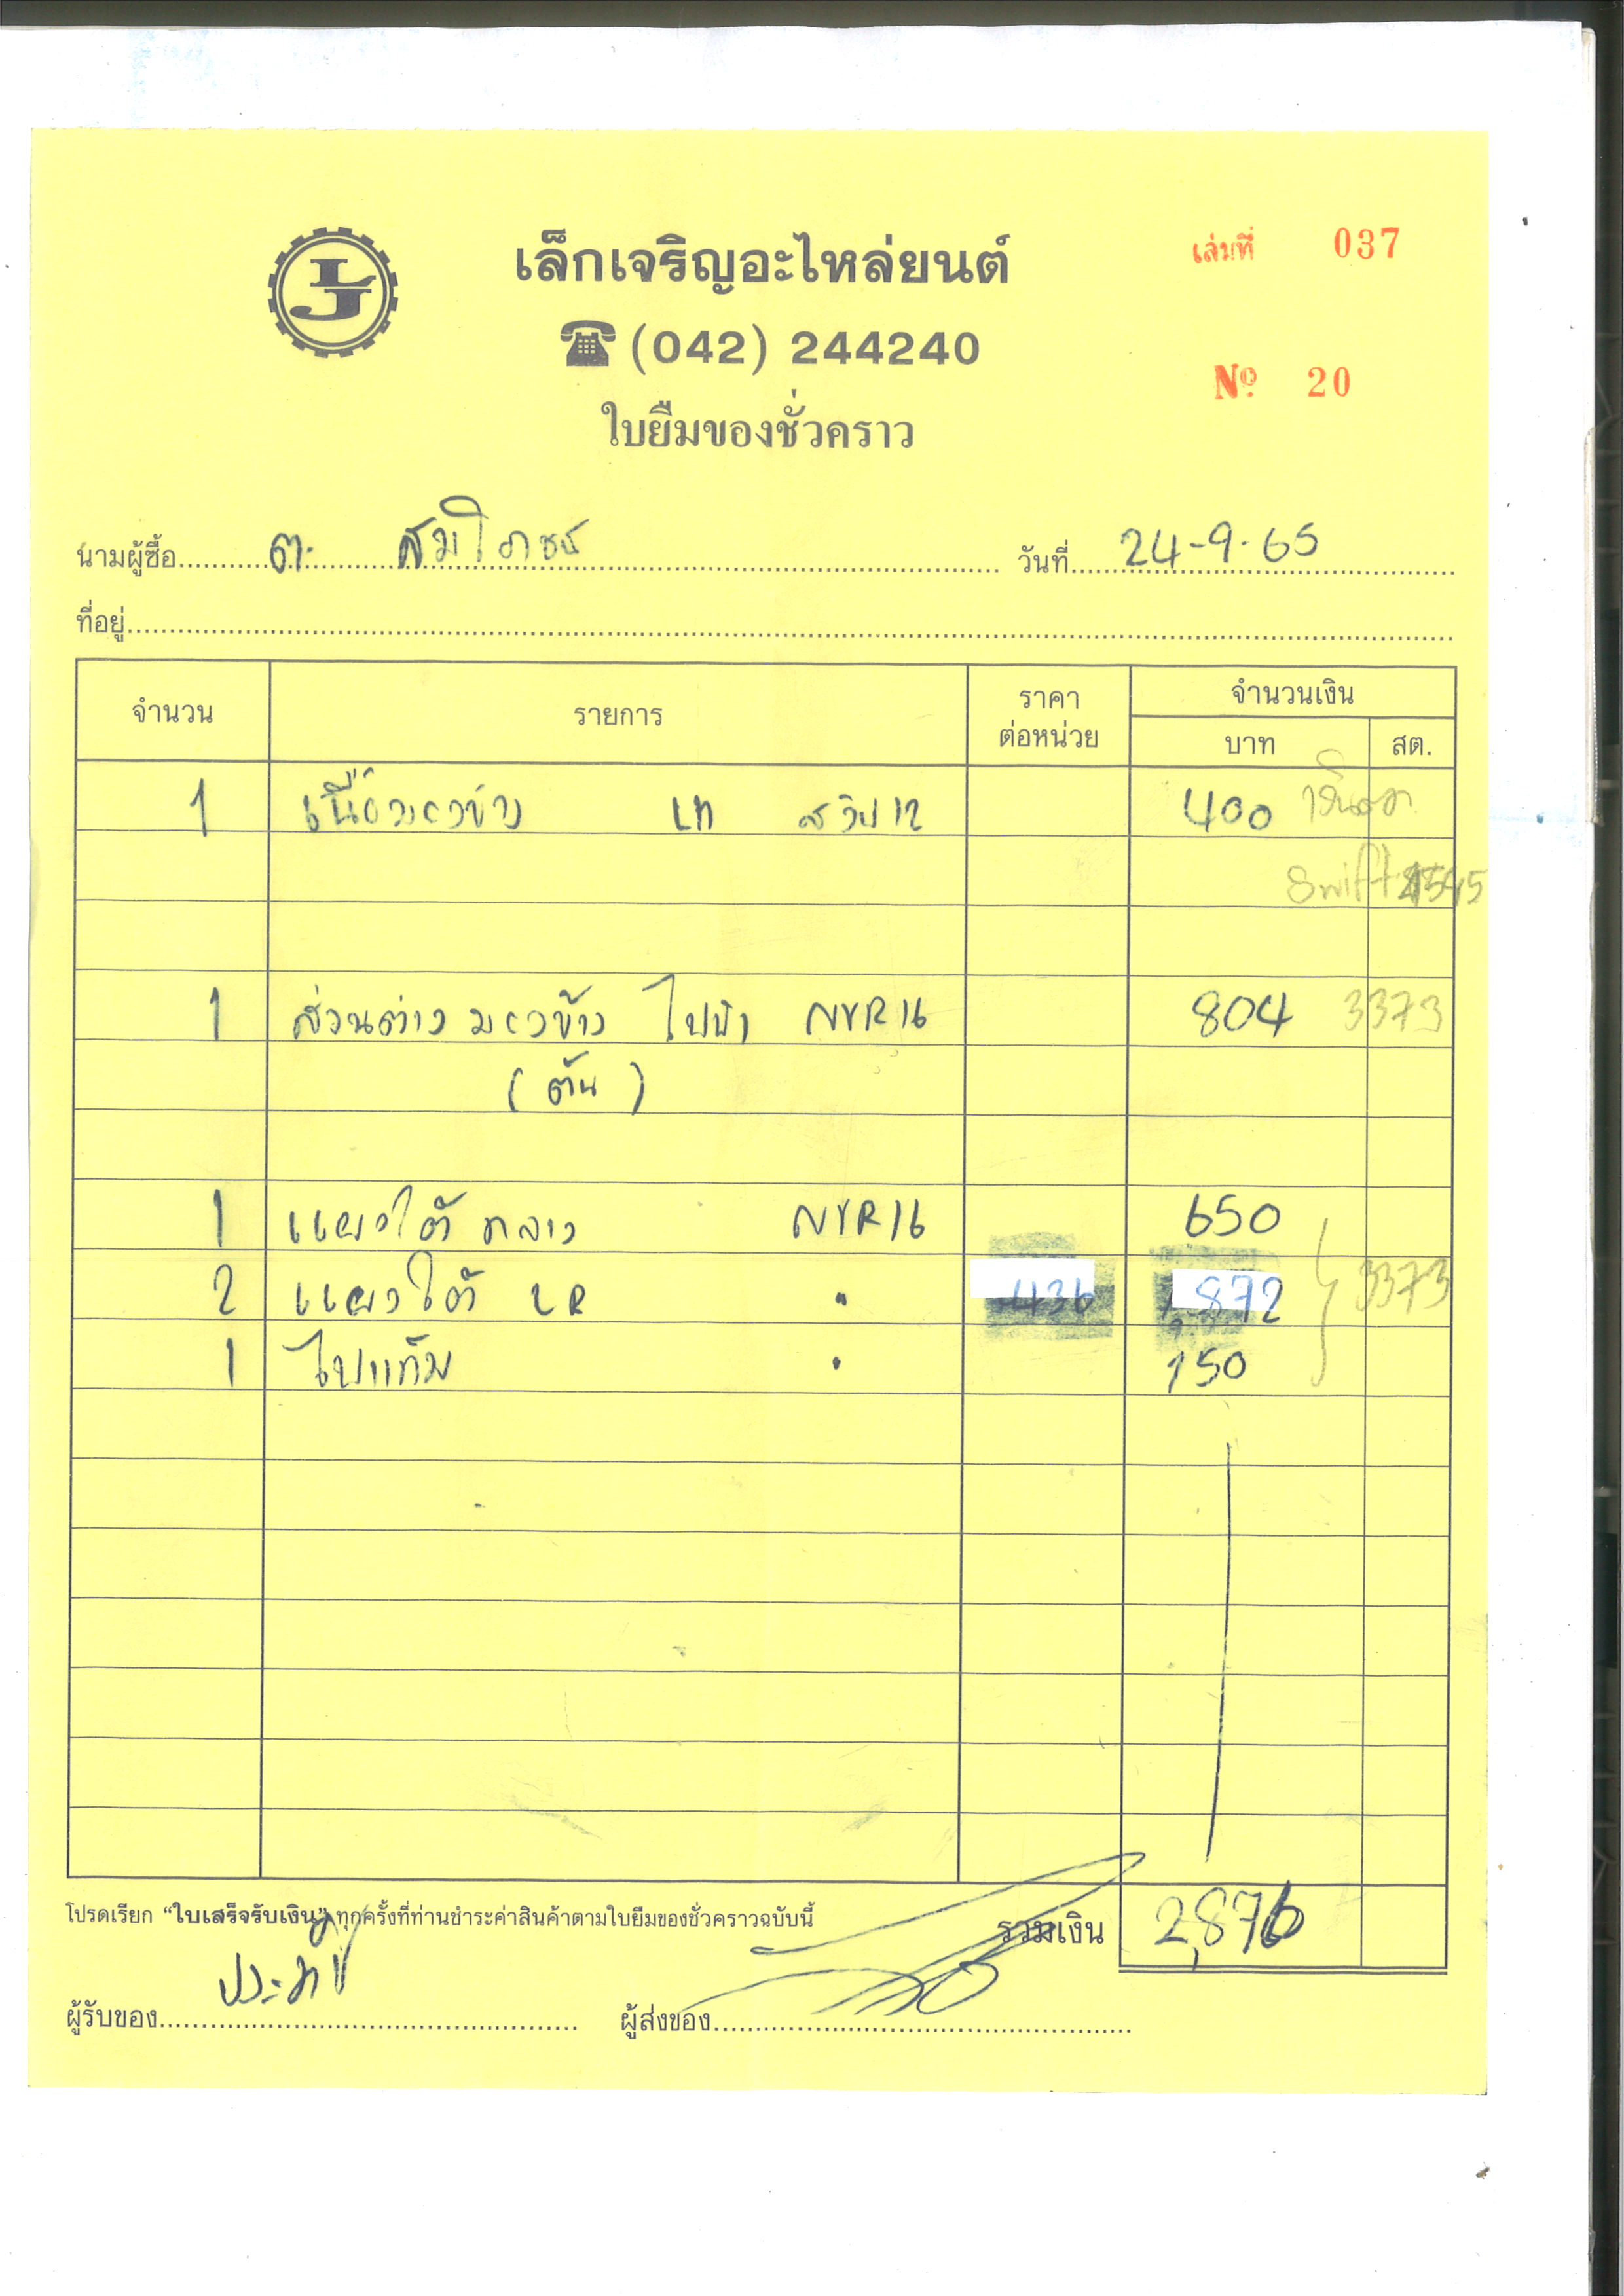 LJ
เล็กเจริญอะไหล่ยนต์
(042) 244240
ใบยืมของชั่วคราว
เล่มที่ 037
No. 20
นามผู้ซื้อ ต. สมโภชน์ วันที่ 24-9-65
ที่อยู่
จำนวน รายการ ราคาต่อหน่วย จำนวนเงิน
บาท สต.
1 400
Swift 4545
1 ส่วนต่าง มองข้าง ไฟฟ้า NVR16 804 3373
(ตัน)
1 แผงใต้ กลาง NVR16 650
2 แผงใต้ LR " 436 872 3373
1 ไฟแก้ม " 150
โปรดเรียก “ใบเสร็จรับเงิน” ทุกครั้งที่ท่านชำระค่าสินค้าตามใบยืมของชั่วคราวฉบับนี้ รวมเงิน 2,876
ผู้รับของ ผู้ส่งของ